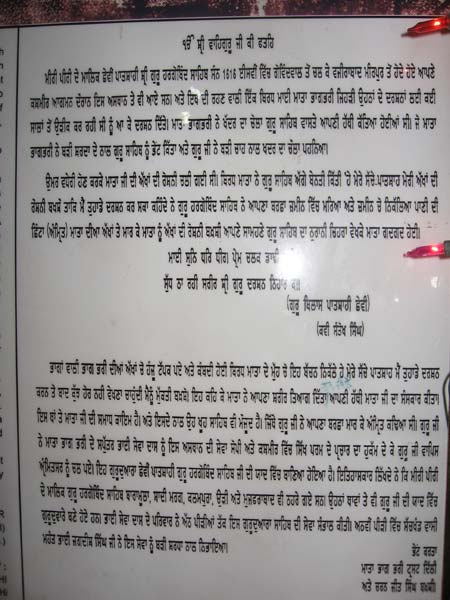 ੴ ਸ੍ਰੀ ਵਾਹਿਗੁਰੂ ਜੀ ਕੀ ਫਤਹਿ
ਮੀਰੀ ਪੀਰੀ ਦੇ ਮਾਲਿਕ ਛੇਵੀਂ ਪਾਤਸ਼ਾਹੀ ਸ੍ਰੀ ਗੁਰੂ ਹਰਗੋਬਿੰਦ ਸਾਹਿਬ ਸੰਨ 1616 ਈਸਵੀ ਵਿੱਚ ਗੋਵਿੰਦਵਾਲ ਤੋਂ ਚਲ ਕੇ ਵਜੀਰਾਬਾਦ ਮੀਰਪੁਰ ਤੋਂ ਹੁੰਦੇ ਹੋਏ ਆਪਣੇ
ਕਸ਼ਮੀਰ ਆਗਮਨ ਦੌਰਾਨ ਇਸ ਅਸਥਾਨ ਤੇ ਵੀ ਆਏ ਸਨ। ਅਤੇ ਇਥੇ ਦੀ ਰਹਣ ਵਾਲੀ ਇੱਕ ਬਿਰਧ ਮਾਈ ਮਾਤਾ ਭਾਗਭਰੀ ਜਿਹੜੀ ਉਹਨਾਂ ਦੇ ਦਰਸ਼ਨਾਂ ਲਈ ਕਈ
ਸਾਲਾਂ ਤੋਂ ਉਡੀਕ ਕਰ ਰਹੀ ਸੀ ਨੂੰ ਆ ਕੇ ਦਰਸ਼ਨ ਦਿੱਤੇ। ਮਾਤਾ ਭਾਗਭਰੀ ਨੇ ਖੱਦਰ ਦਾ ਚੋਲਾ ਗੁਰੂ ਸਾਹਿਬ ਵਾਸਤੇ ਆਪਣੀ ਹੱਥੀਂ ਕੱਤਿਆ ਹੋਇਆ ਸੀ। ਜੋ ਮਾਤਾ
ਭਾਗਭਰੀ ਨੇ ਬੜੀ ਸ਼ਰਦਾ ਦੇ ਨਾਲ ਗੁਰੂ ਸਾਹਿਬ ਨੂੰ ਭੇਂਟ ਕਿੱਤਾ ਅਤੇ ਗੁਰੂ ਜੀ ਨੇ ਬੜੀ ਚਾਹ ਨਾਲ ਖਦਰ ਦਾ ਚੋਲਾ ਪਹਨਿਆ।
ਉਮਰ ਵਧੇਰੀ ਹੋਣ ਕਰਕੇ ਮਾਤਾ ਜੀ ਦੀ ਅੱਖਾਂ ਦੀ ਰੋਸ਼ਨੀ ਚਲੀ ਗਈ ਸੀ। ਬਿਰਧ ਮਾਤਾ ਨੇ ਗੁਰੂ ਸਾਹਿਬ ਅੱਗੇ ਬੇਨਤੀ ਕਿੱਤੀ ਹੇ ਮੇਰੇ ਸੱਚੇ-ਪਾਤਸ਼ਾਹ ਮੇਰੀ ਅੱਖਾਂ ਦੀ
ਰੋਸ਼ਨੀ ਬਖਸ਼ੋ ਤਾਂਕਿ ਮੈਂ ਤੁਹਾਡੇ ਦਰਸ਼ਨ ਕਰ ਸਕਾਂ ਕਹਿੰਦੇ ਨੇ ਗੁਰੂ ਹਰਗੋਬਿੰਦ ਸਾਹਿਬ ਨੇ ਆਪਣਾ ਬਰਛਾ ਜ਼ਮੀਨ ਵਿੱਚ ਮਾਰਿਆ ਅਤੇ ਜ਼ਮੀਨ ਚੋਂ ਨਿਕਲਿਆ ਪਾਣੀ ਦੀ
ਛਿੱਟਾ (ਅੰਮ੍ਰਿਤ) ਮਾਤਾ ਦੀਆਂ ਅੱਖਾਂ ਤੇ ਮਾਰ ਕੇ ਮਾਤਾ ਨੂੰ ਅੱਖਾਂ ਦੀ ਰੋਸ਼ਨੀ ਬਖਸ਼ੀ ਆਪਣੇ ਸਾਮਹਣੇ ਗੁਰੂ ਸਾਹਿਬ ਦਾ ਨੂਰਾਨੀ ਚਿਹਰਾ ਵੇਖਕੇ ਮਾਤਾ ਗਦਗਦ ਹੋਈ।
ਮਾਈ ਸੁਨਿ ਧਰਿ ਧੀਰ। ਪ੍ਰੇਮ ਚਲਕ
ਸੁੱਧ ਨਾ ਰਹੀ ਸਰੀਰ ਸ੍ਰੀ ਗੁਰੂ ਦਰਸ਼ਨ ਨਿਹਾਰ
(ਗੁਰੂ ਬਿਲਾਸ ਪਾਤਸ਼ਾਹੀ ਛੇਵੀਂ)
(ਕਵੀ ਸੰਤੋਖ ਸਿੰਘ)
ਭਾਗਾਂ ਵਾਲੀ ਭਾਗ ਭਰੀ ਦੀਆਂ ਅੱਖਾਂ ਚੋਂ ਹੰਝੂ ਟੱਪਕ ਪਏ ਅਤੇ ਕੰਬਦੀ ਹੋਈ ਬਿਰਧ ਮਾਤਾ ਦੇ ਮੂੰਹ ਚੋਂ ਇਹ ਬੱਚਨ ਨਿਕਲੇ ਹੇ ਮੇਰੇ ਸੱਚੇ ਪਾਤਸ਼ਾਹ ਮੈਂ ਤੁਹਾਡੇ ਦਰਸ਼ਨ
ਕਰਨ ਤੋਂ ਬਾਦ ਕੁੱਝ ਹੋਰ ਨਹੀਂ ਵੇਖਣਾ ਚਾਹੁੰਦੀ ਮੈਨੂੰ ਮੁੱਕਤੀ ਬਖਸ਼ੋ। ਇਹ ਕਹਿ ਕੇ ਮਾਤਾ ਨੇ ਆਪਣਾ ਸ਼ਰੀਰ ਤਿਆਗ ਦਿੱਤਾ ਆਪਣੀ ਹੱਥੀਂ ਮਾਤਾ ਜੀ ਦਾ ਸੰਸਕਾਰ ਕੀਤਾ।
ਇਸ ਥਾਂ ਤੇ ਮਾਤਾ ਜੀ ਦੀ ਸਮਾਧ ਕਾਇਮ ਹੈ। ਅਤੇ ਇਸਦੇ ਨਾਲ ਉਹ ਖੂਹ ਸਾਹਿਬ ਵੀ ਮੌਜੂਦ ਹੈ। ਜਿੱਥੇ ਗੁਰੂ ਜੀ ਨੇ ਆਪਣਾ ਬਰਛਾ ਮਾਰ ਕੇ ਅੰਮ੍ਰਿਤ ਕਢਿਆ ਸੀ। ਗੁਰੂ ਜੀ
ਨੇ ਮਾਤਾ ਭਾਗ ਭਰੀ ਦੇ ਸਪੁੱਤਰ ਭਾਈ ਸੇਵਾ ਦਾਸ ਨੂੰ ਇਸ ਅਸਥਾਨ ਦੀ ਸੇਵਾ ਸੌਂਪੀ ਅਤੇ ਕਸ਼ਮੀਰ ਵਿੱਚ ਸਿੱਖ ਧਰਮ ਦੇ ਪ੍ਰਚਾਰ ਦਾ ਹੁਕਮ ਦੇ ਕੇ ਗੁਰੂ ਜੀ ਵਾਪਿਸ
ਅੰਮ੍ਰਿਤਸਰ ਨੂੰ ਚਲ ਪਏ। ਇਹ ਗੁਰੂਦੁਆਰਾ ਛੇਵੀਂ ਪਾਤਸ਼ਾਹੀ ਗੁਰੂ ਹਰਗੋਬਿੰਦ ਸਾਹਿਬ ਜੀ ਦੀ ਯਾਦ ਵਿੱਚ ਬਣਿਆ ਹੋਇਆ ਹੈ। ਇਤਿਹਾਸਕਾਰ ਲਿੱਖਦੇ ਨੇ ਕਿ ਮੀਰੀ ਪੀਰੀ
ਦੇ ਮਾਲਿਕ ਗੁਰੂ ਹਰਗੋਬਿੰਦ ਸਾਹਿਬ ਬਾਰਾਮੂਲਾ, ਸ਼ਾਦੀ ਮਰਗ, ਕਲਮਪੁਰਾ, ਉੜੀ ਅਤੇ ਮੁਜ਼ਫਰਾਬਾਦ ਵੀ ਠਹਰੇ ਗਏ ਸਨ। ਉਹਨਾਂ ਥਾਵਾਂ ਤੇ ਵੀ ਗੁਰੂ ਜੀ ਦੀ ਯਾਦ ਵਿੱਚ
ਗੁਰੂਦੁਵਾਰੇ ਬਣੇ ਹੋਏ ਹਨ। ਭਾਈ ਸੇਵਾ ਦਾਸ ਦੇ ਪਰਿਵਾਰ ਨੇ ਅੱਠ ਪੀੜੀਆਂ ਤੱਕ ਇਸ ਗੁਰੂਦੁਆਰਾ ਸਾਹਿਬ ਦੀ ਸੇਵਾ ਸੰਭਾਲ ਕੀਤੀ। ਅਠਵੀਂ ਪੀੜੀ ਵਿੱਚ ਸੱਚਖੰਡ ਵਾਸੀ
ਮਹੰਤ ਭਾਈ ਜਗਦੀਸ਼ ਸਿੰਘ ਜੀ ਨੇ ਇਸ ਸੇਵਾ ਨੂੰ ਬੜੀ ਸ਼ਰਧਾ ਨਾਲ ਨਿਭਾਇਆ।
ਭੇਂਟ ਕਰਤਾ
ਮਾਤਾ ਭਾਗ ਭਰੀ ਟ੍ਰਸਟ ਦਿੱਲੀ
ਅਤੇ ਚਰਨ ਜੀਤ ਸਿੰਘ ਬਖਸ਼ੀ